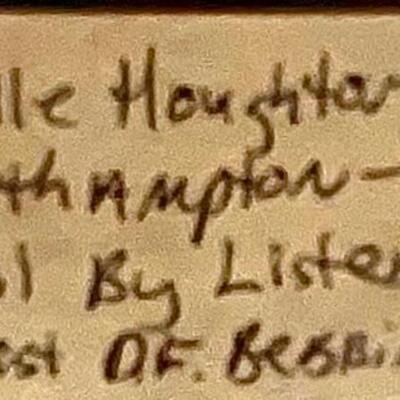 lle Houghton
thAmpton -
l By Listen
est OF. Bessi